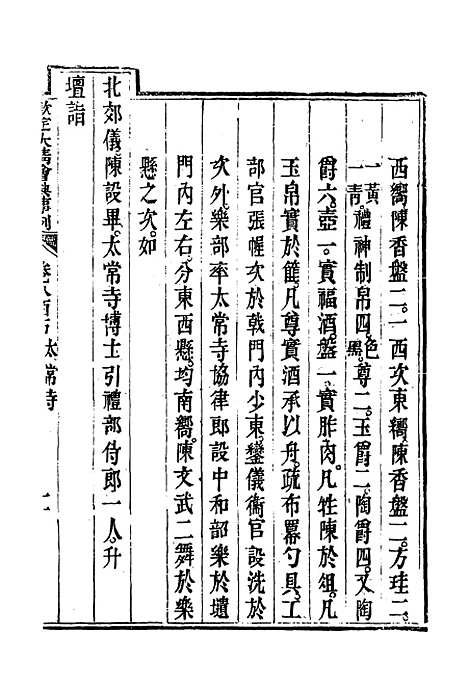 西嚮陳香盤二。一西次東嚮。陳香盤二。方珪二。
一黃一青。禮神制帛四。色黑。尊二。玉爵二。陶爵四。又陶
爵六。壺一。實福酒。盤一。實胙肉。凡牲陳於俎。凡
玉帛實於篚。凡尊實酒承以舟。疏布冪勺具。工
部官張幄次於戟門內少東。鑾儀衞官設洗於
次外。樂部率太常寺協律郎設中和部樂於壝
門內左右。分東西懸。均南嚮。陳文武二舞於樂
懸之次。如
北郊儀陳設畢。太常寺博士引禮部侍郎一人。升
壇詣
欽定大清會典事例
卷一千八百七 太常寺